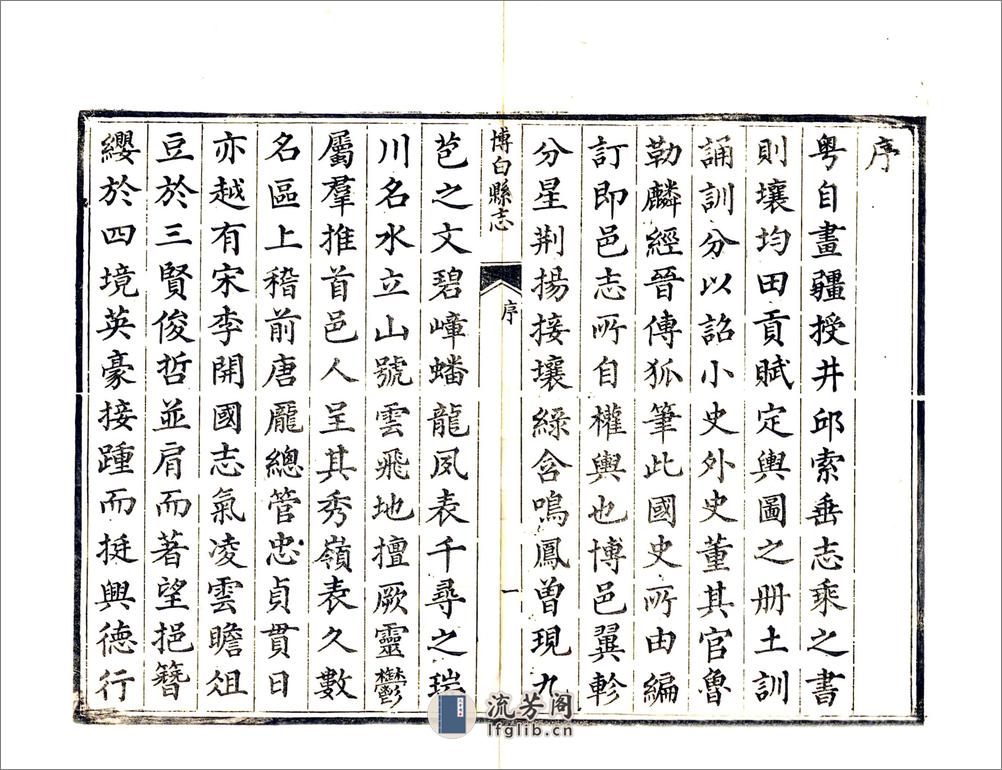 序
粤自畫疆授井邱索垂志乘之書
則壤均田貢賦定輿圖之册土訓
誦訓分以詔小史外史董其官魯
勒麟經晉傳狐筆此國史所由編
訂即邑志所自權輿也博邑翼軫
分星荆揚接壤綠含鳴鳳曽現九
博白縣志
序
一
苞之文碧嶂蟠龍夙表千尋之瑞
川名水立山號雲飛地擅厥靈鬱
屬羣推首邑人呈其秀嶺表久數
名區上稽前唐龎總管忠貞貫日
亦越有宋李開國志氣凌雲瞻俎
豆於三賢俊哲並肩而著望挹簪
纓於四境英豪接踵而挺興德行
流芳阁
lfglib.cn